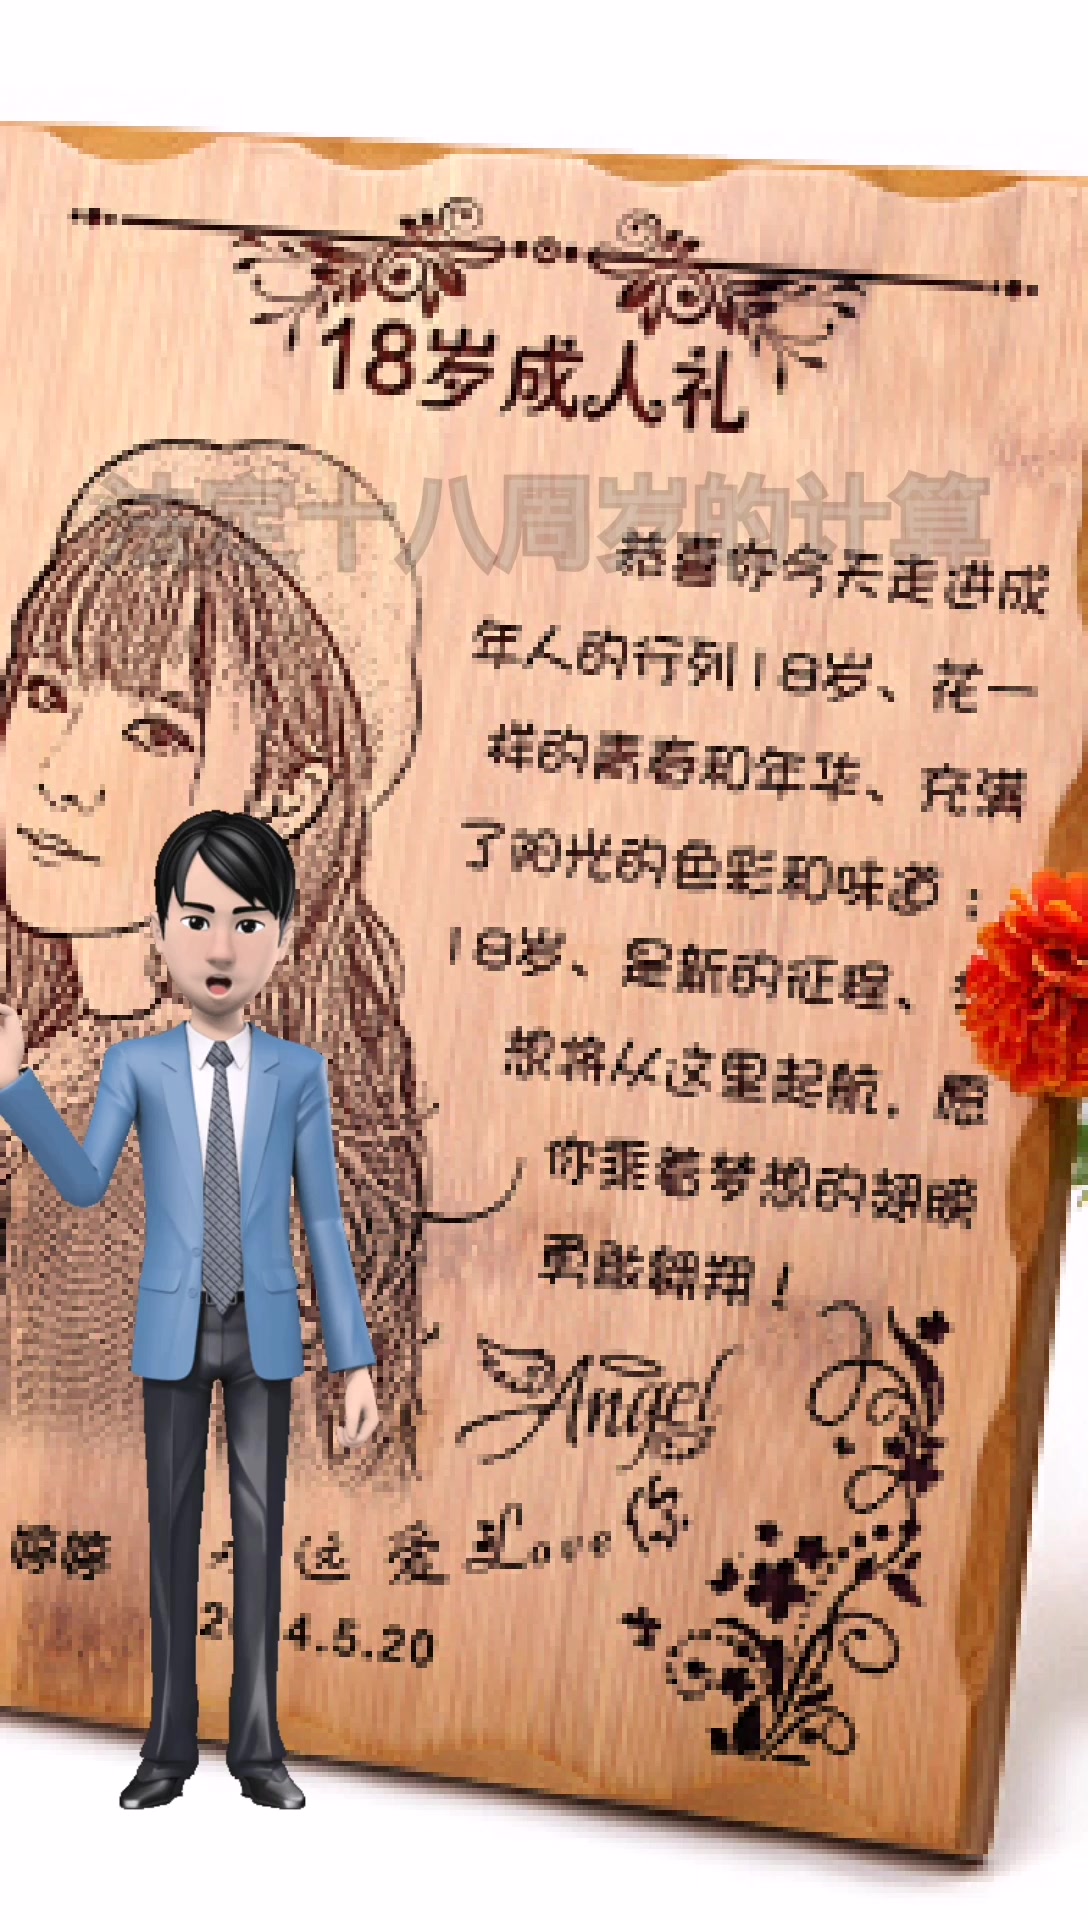 18岁成人礼
法定十八周岁的计算
恭喜你今天走进成
年人的行列18岁、花一
样的青春和年华、充满
了阳光的色彩和味道；
18岁、是新的征程、
想将从这里起航．愿
你乘着梦想的翅膀
勇敢翱翔！
Angel
婷婷 这 爱 Love
4.5.20